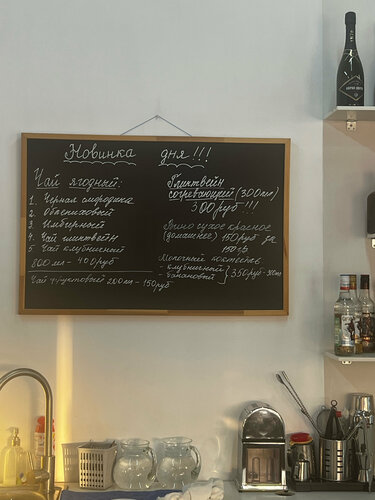 Новинка дня!!!
Чай ягодный:
1. Черная смородина
2. Облепиховый
3. Имбирный
4. Чай глинтвейн
5. Чай клубничный
800мл - 400руб
Чай фруктовый 200мл - 150руб
Глинтвейн
согревающий (300мл)
300руб!!!
Вино сухое красное
(домашнее) 150руб за
150гр
Молочный коктейль
- клубничный
- банановый } 350руб-300мл